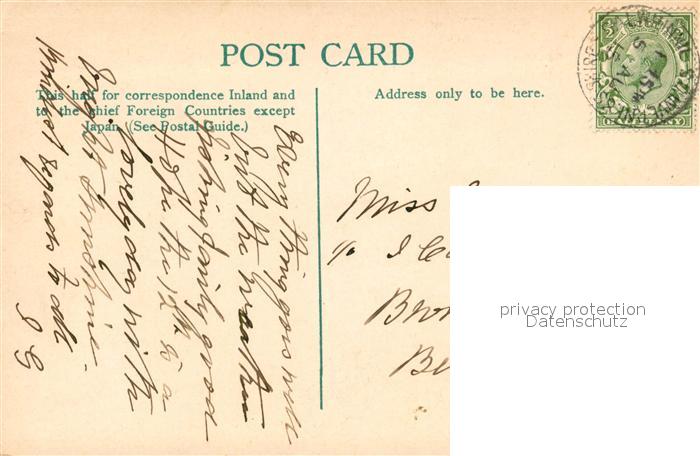 POST CARD
This half for correspondence Inland and
to the chief Foreign Countries except
Japan. (See Postal Guide.)
Address only to be here.
Every thing goes well
but the weather
fishing fairly good
Hope the 12th is a
lovely day with
bright sunshine.
Kindest regards to all
J G
Miss
c/o J
privacy protection
Datenschutz